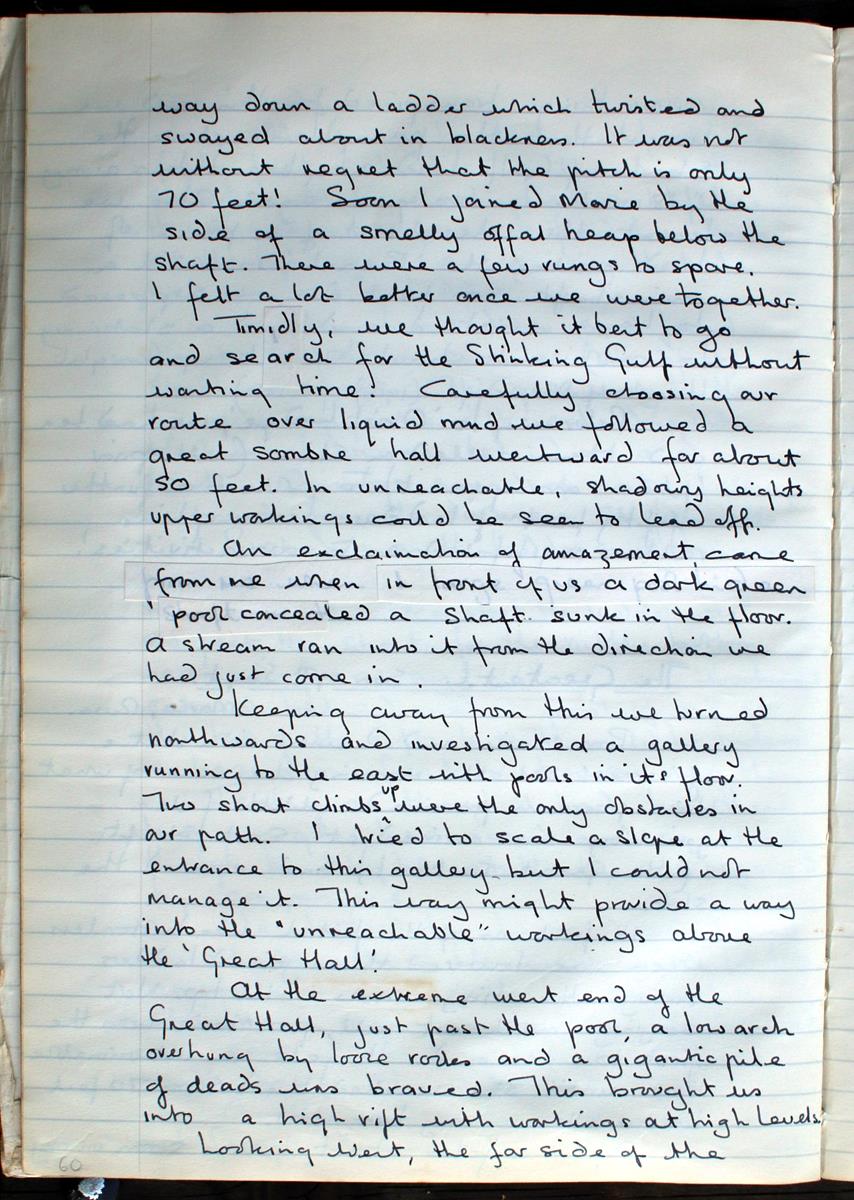 way down a ladder which twisted and
swayed about in blackness. It was not
without regret that the pitch is only
70 feet! Soon I joined Marie by the
side of a smelly offal heap below the
shaft. There were a few rungs to spare.
I felt a lot better once we were together.
Timidly, we thought it best to go
and search for the Stinking Gulf without
wasting time! Carefully choosing our
route over liquid mud we followed a
great sombre hall westward for about
50 feet. In unreachable, shadowy heights
upper workings could be seen to lead off.
An exclaimation of amazement, came
from me when in front of us a dark green
pool concealed a shaft sunk in the floor.
A stream ran into it from the direction we
had just come in.
Keeping away from this we turned
northwards and investigated a gallery
running to the east with pools in its floor.
Two short climbs up were the only obstacles in
our path. I tried to scale a slope at the
entrance to this gallery but I could not
manage it. This way might provide a way
into the "unreachable" workings above
the 'Great Hall'.
At the extreme west end of the
Great Hall, just past the pool, a low arch
overhung by loose rocks and a gigantic pile
of deads was braved. This brought us
into a high rift with workings at high levels.
Looking west, the far side of the
60